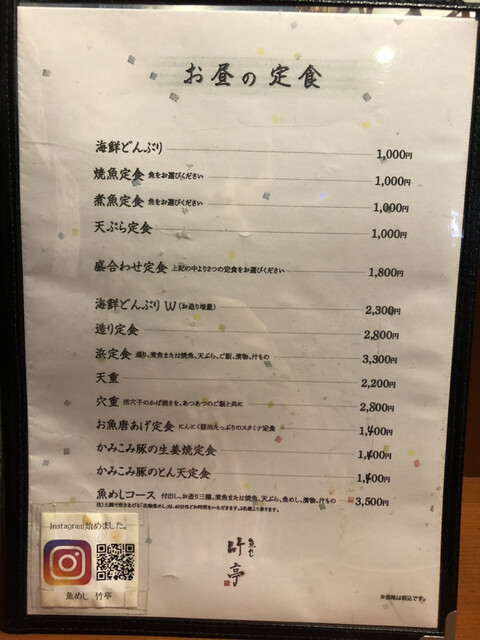 お昼の定食
海鮮どんぶり 1,000円
焼魚定食 魚をお選びください 1,000円
煮魚定食 魚をお選びください 1,000円
天ぷら定食 1,000円
盛合わせ定食 上記の中より2つの定食をお選びください 1,800円
海鮮どんぶりW(お造り増量) 2,300円
造り定食 2,800円
浜定食 造り、煮魚または焼魚、天ぷら、ご飯、漬物、汁もの 3,300円
天重 2,200円
穴重 煮穴子のかば焼きを、あつあつのご飯と共に 2,800円
お魚唐あげ定食 にんにく醤油たっぷりのスタミナ定食 1,400円
かみこみ豚の生姜焼定食 1,400円
かみこみ豚のとん天定食 1,400円
魚めしコース 付出し、お造り三種、煮魚または焼魚、天ぷら、魚めし、漬物、汁もの 3,500円
Instagram始めました。
魚めし 竹亭
魚めし
竹亭
※価格は税込です。